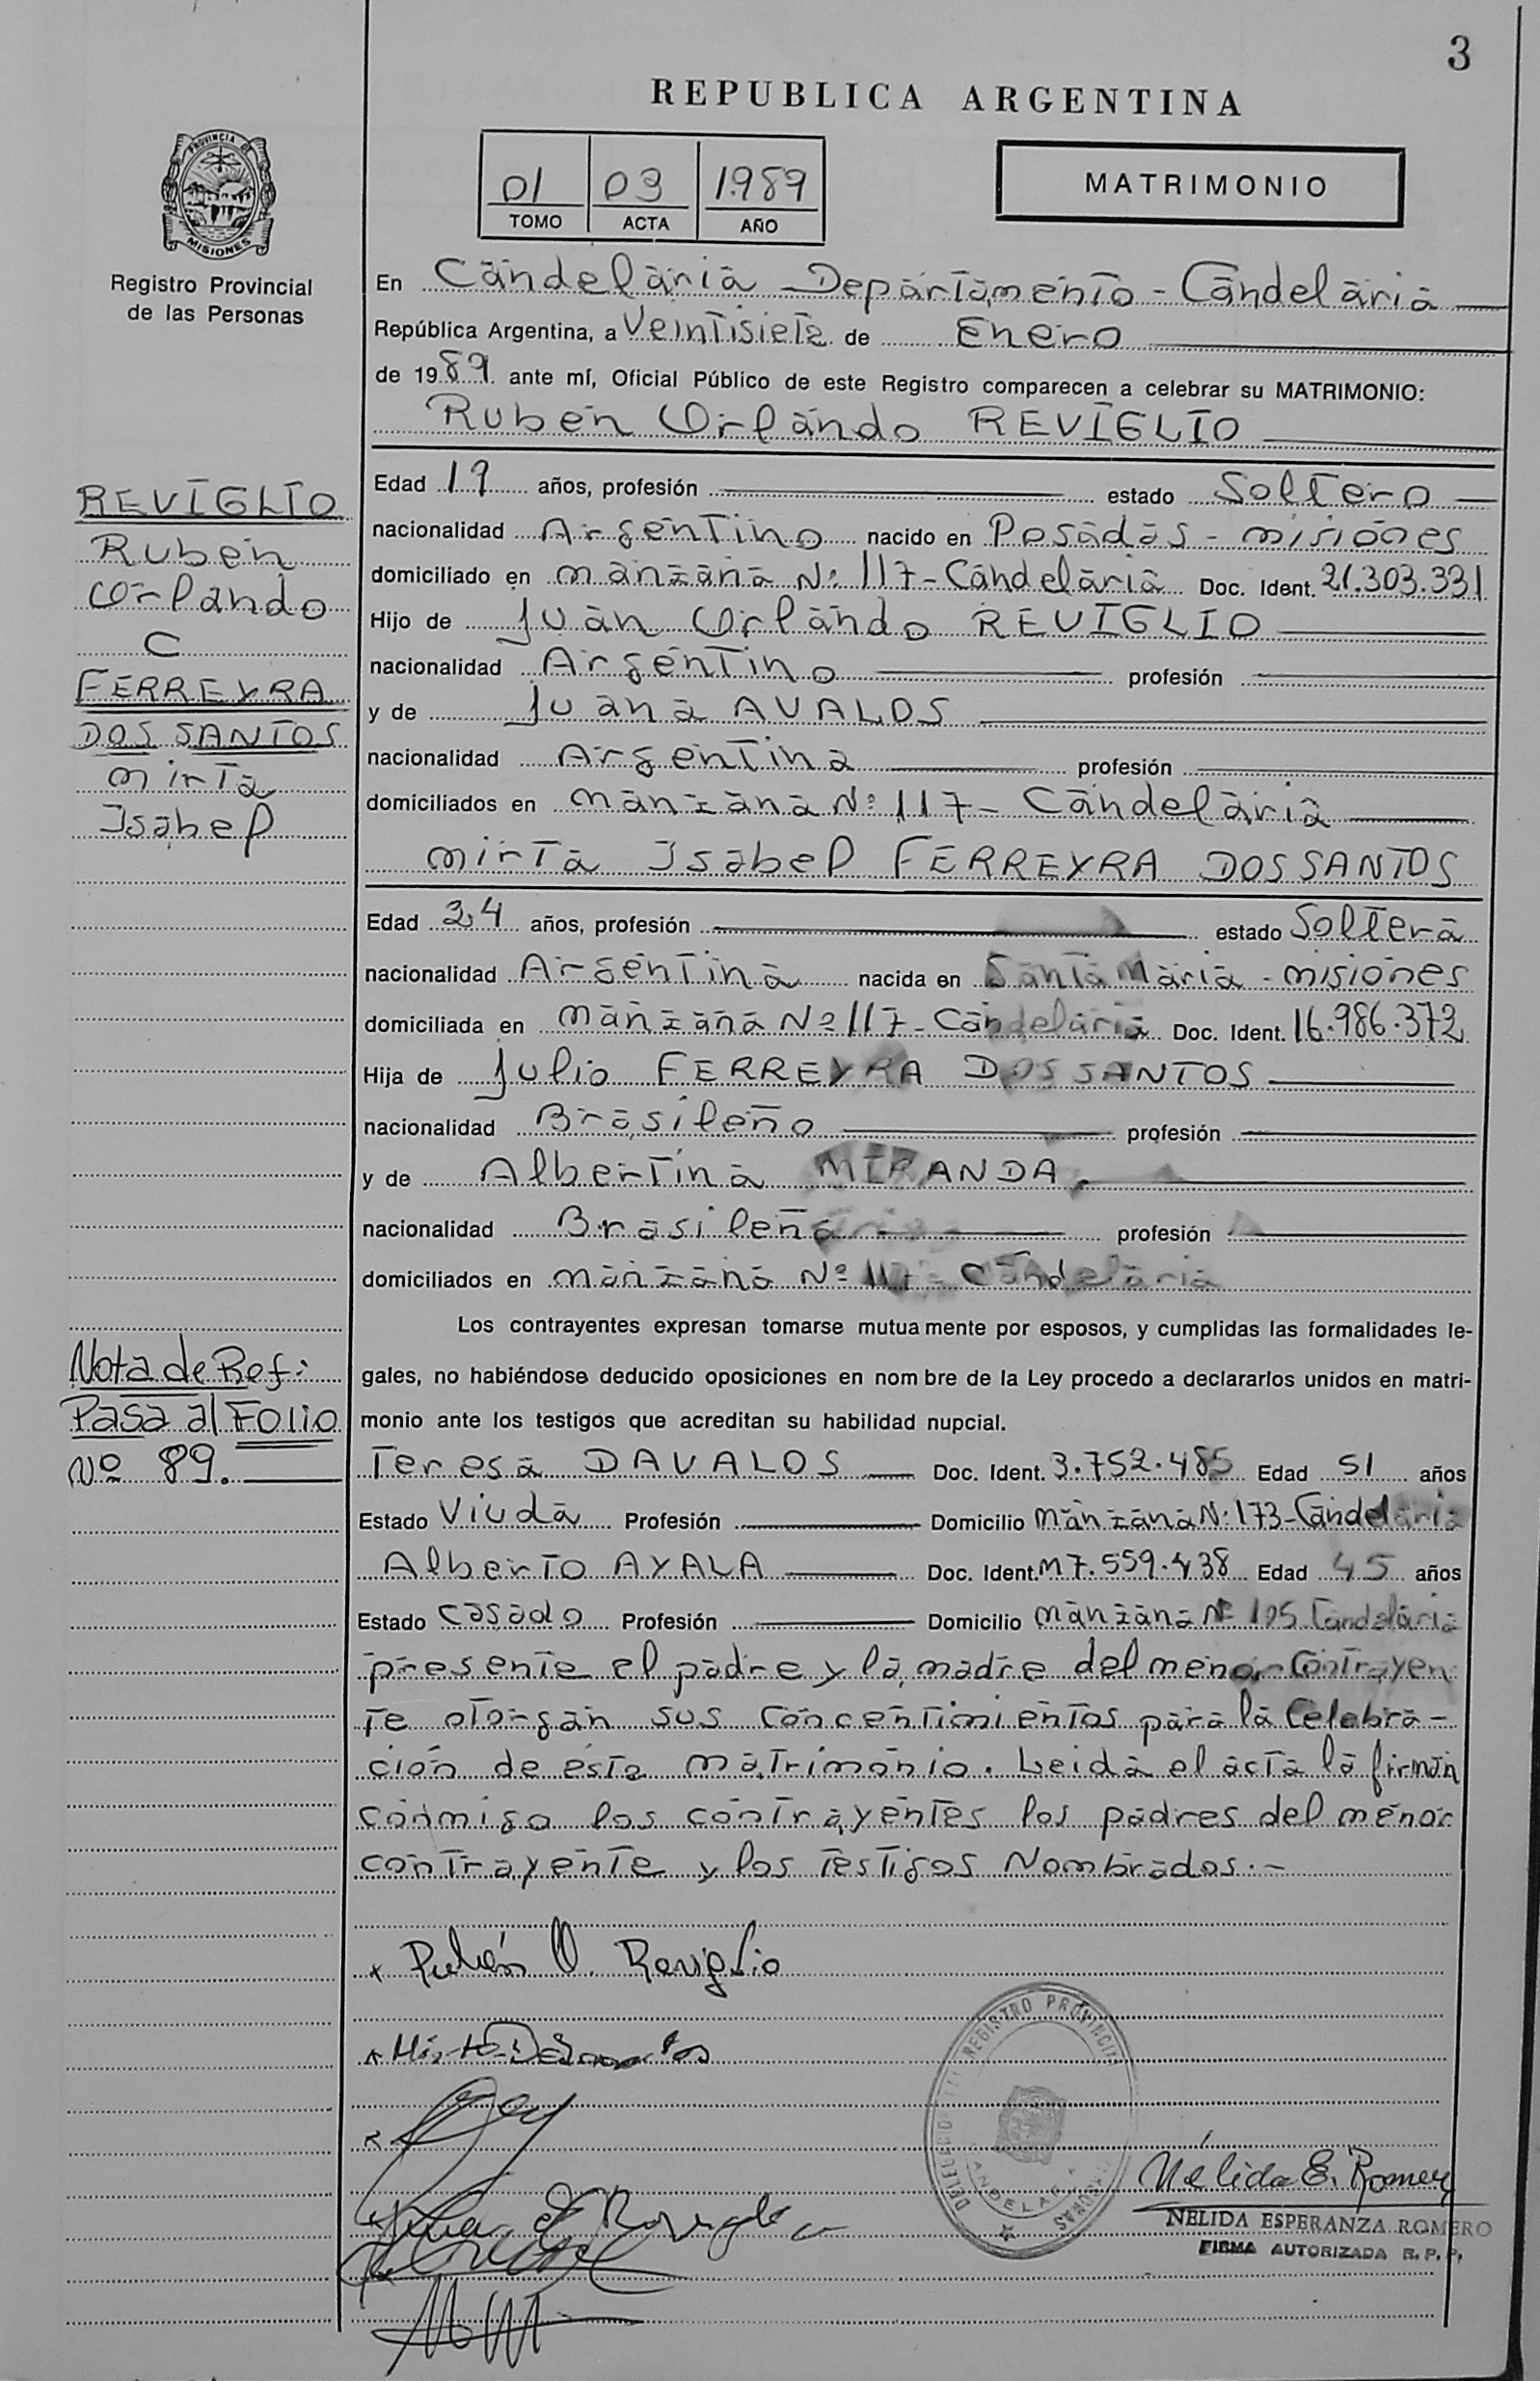 3
REPUBLICA ARGENTINA
PROVINCIA DE
MISIONES
Registro Provincial
de las Personas
01 03 1989
TOMO ACTA AÑO
MATRIMONIO
En Candelaria Departamento - Candelaria
República Argentina, a Veintisiete de Enero
de 1989 ante mí, Oficial Público de este Registro comparecen a celebrar su MATRIMONIO:
Ruben Orlando REVIGLIO
Edad 19 años, profesión estado Soltero
nacionalidad Argentino nacido en Posadas - misiones
domiciliado en manzana Nº 117 - Candelaria Doc. Ident. 21.303.331
Hijo de Juan Orlando REVIGLIO
nacionalidad Argentino profesión
y de Juana AVALOS
nacionalidad Argentina profesión
domiciliados en manzana Nº 117 - Candelaria
mirta Isabel FERREYRA DOS SANTOS
Edad 24 años, profesión estado Soltera
nacionalidad Argentina nacida en Santa Maria - misiones
domiciliada en manzana Nº 117 - Candelaria Doc. Ident. 16.986.372
Hija de Julio FERREYRA DOS SANTOS
nacionalidad Brasileño profesión
y de Albertina MIRANDA
nacionalidad Brasileña profesión
domiciliados en manzana Nº 117 - Candelaria
Los contrayentes expresan tomarse mutuamente por esposos, y cumplidas las formalidades le-
gales, no habiéndose deducido oposiciones en nombre de la Ley procedo a declararlos unidos en matri-
monio ante los testigos que acreditan su habilidad nupcial.
Teresa DAVALOS Doc. Ident. 3.752.485 Edad 51 años
Estado Viuda Profesión Domicilio manzana Nº 173 - Candelaria
Alberto AYALA Doc. Ident. M7.559.438 Edad 45 años
Estado casado Profesión Domicilio manzana Nº 105 Candelaria
presente el padre y la madre del menor Contrayen
te otorgan sus concentimientos para la Celebra-
ción de este matrimonio. Leida el acta la firman
conmigo los contrayentes los padres del menor
contrayente y los testigos Nombrados.-
REVIGLIO
Ruben
Orlando
C
FERREYRA
DOS SANTOS
mirta
Isabel
Nota de Ref:
Pasa al FOLIO
Nº 89.
x Rubén O. Reviglio
x Mirta Dos Santos
REGISTRO PROVINCIAL
CANDELARIA
Nélida E. Romero
NELIDA ESPERANZA ROMERO
FIRMA AUTORIZADA R. P. P.